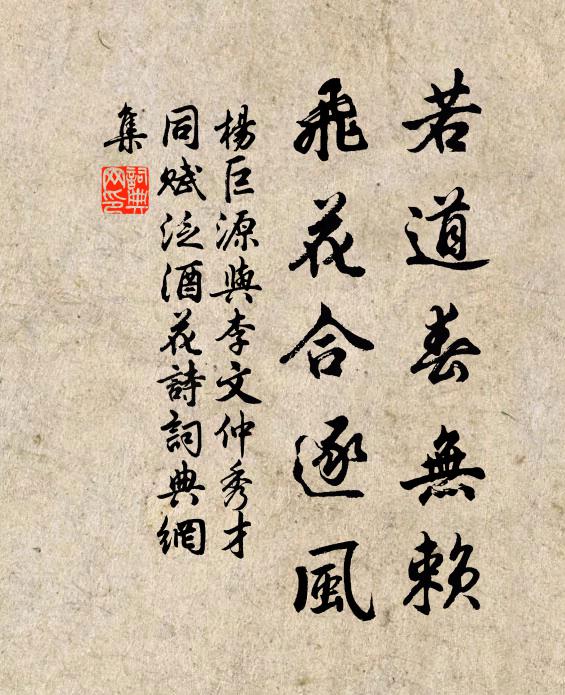 若道春無賴
飛花合逐風
楊巨源與李文仲秀才
同賦泛酒花詩詞典網
集
詞典
网印